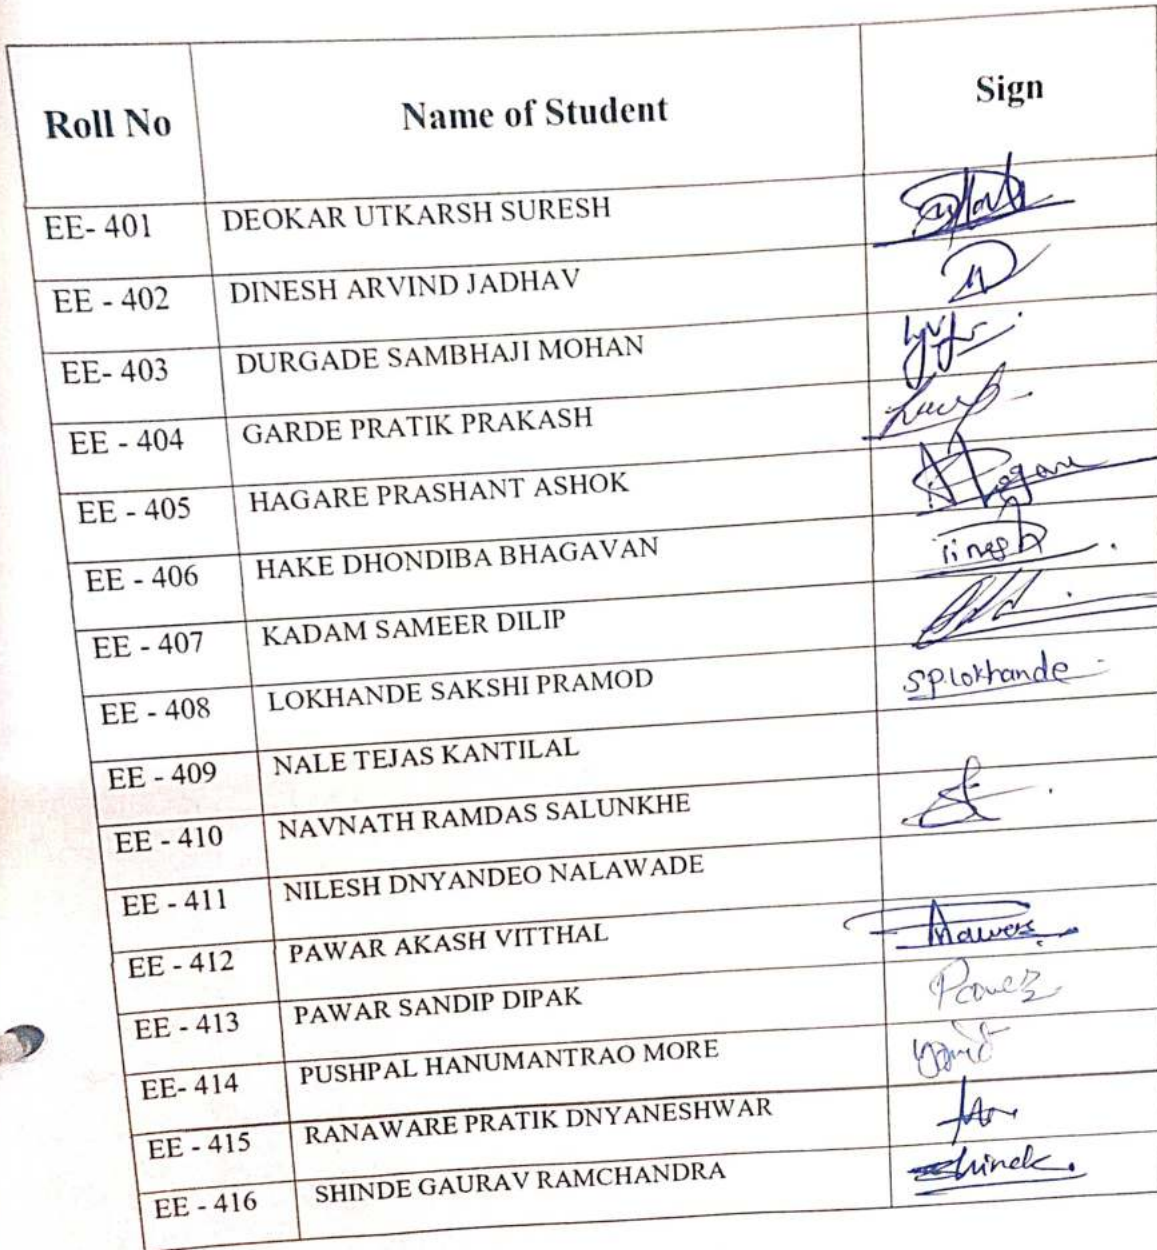 Roll No Name of Student Sign
EE- 401 DEOKAR UTKARSH SURESH
EE - 402 DINESH ARVIND JADHAV
EE- 403 DURGADE SAMBHAJI MOHAN
EE - 404 GARDE PRATIK PRAKASH
EE - 405 HAGARE PRASHANT ASHOK
EE - 406 HAKE DHONDIBA BHAGAVAN
EE - 407 KADAM SAMEER DILIP
EE - 408 LOKHANDE SAKSHI PRAMOD SPLokhande
EE - 409 NALE TEJAS KANTILAL
EE - 410 NAVNATH RAMDAS SALUNKHE
EE - 411 NILESH DNYANDEO NALAWADE
EE - 412 PAWAR AKASH VITTHAL
EE - 413 PAWAR SANDIP DIPAK
EE- 414 PUSHPAL HANUMANTRAO MORE
EE - 415 RANAWARE PRATIK DNYANESHWAR
EE - 416 SHINDE GAURAV RAMCHANDRA